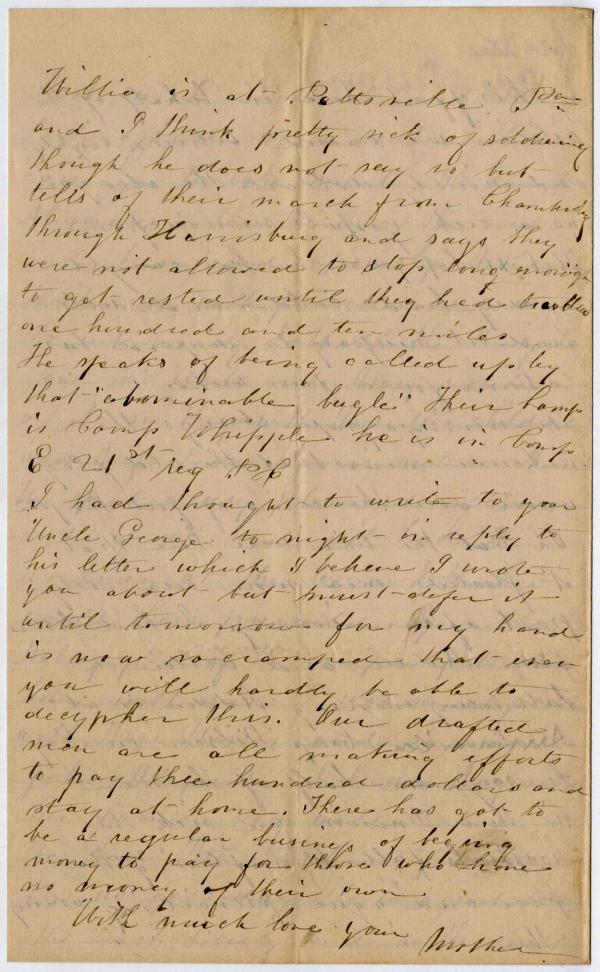 Willie is at Pottsville Pa
and I think pretty sick of soldiering
though he does not say so but
tells of their march from Chambersbg
through Harrisburg and says they
were not allowed to stop long enough
to get rested until they had
one hundred and ten miles
He speaks of being called up by
that "abominable bugle" Their Camp
is Camp Whipple he is in Comp
E 21st reg
I had thought to write to your
Uncle George to night in reply to
his letter which I believe I wrote
you about but must defer it
until tomorrow for my hand
is now so cramped that even
you will hardly be able to
decypher this. Our drafted
men are all making efforts
to pay thee hundred dollars and
stay at home. There has got to
be a regular business of beging
money to pay for those who have
no money of their own
With much love your
Mother